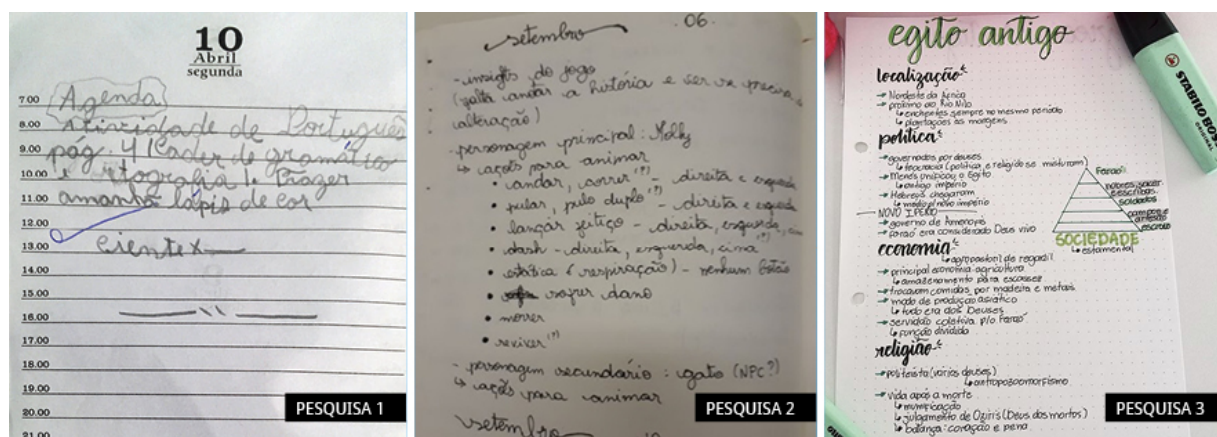 10
Abril
segunda
7.00
Agenda
8.00
Atividade de Português
9.00
pag. 41 Cader de gramático
10.00
e rtografia 1. Trazer
11.00
amanhã lápis de cor
12.00
13.00
Ciente x
14.00
15.00
16.00
17.00
18.00
19.00
20.00
21.00
PESQUISA 1
setembro 06.
- insights do jogo
(falta andar a história e ver se precisa
alteração)
- personagem principal: Molly
↳ ações para animar
• andar, correr (?) - direita e esquerda
• pular, pulo duplo - direita e esquerda
• lançar feitiço - direita, esquerda, cima
• dash - direita, esquerda, cima (?)
• estática (respiração) - nenhum botão
• sofrer dano
• morrer
• reviver (?)
- personagem secundário: gato (NPC?)
↳ ações para animar
setembro
PESQUISA 2
egito antigo
localização
→ Nordeste da África
→ próximo ao Rio Nilo
↳ enchentes sempre no mesmo período
↳ plantações as margens
política
→ governados por deuses
↳ teocracia (política e religião se misturam)
→ Menés unificou o Egito
↳ antigo império
→ Hebreus chegaram
↳ médio/novo império
NOVO IPÉRIO
→ governo de Amenopis
→ faraó era considerado Deus vivo
Faraó
nobres, sacer.
e escribas.
soldados
campos. e
artesão
escravo
SOCIEDADE
↳ estamental
economia
↳ agropastoril de regadil
→ principal economia agricultura
↳ amazenamento para escassez
→ trocavam comidas por madeira e metais
→ modo de produção asiático
↳ tudo era dos Deuses
→ servidão coletiva p/o Faraó
↳ função dividida
religião
→ politeísta (vários deuses)
↳ antropozoomorfismo
→ vida após a morte
↳ mumificação
↳ julgamento de Oziris (Deus dos mortos)
↳ balança: coração e pena
STABILO BOSS
ORIGINAL
PESQUISA 3